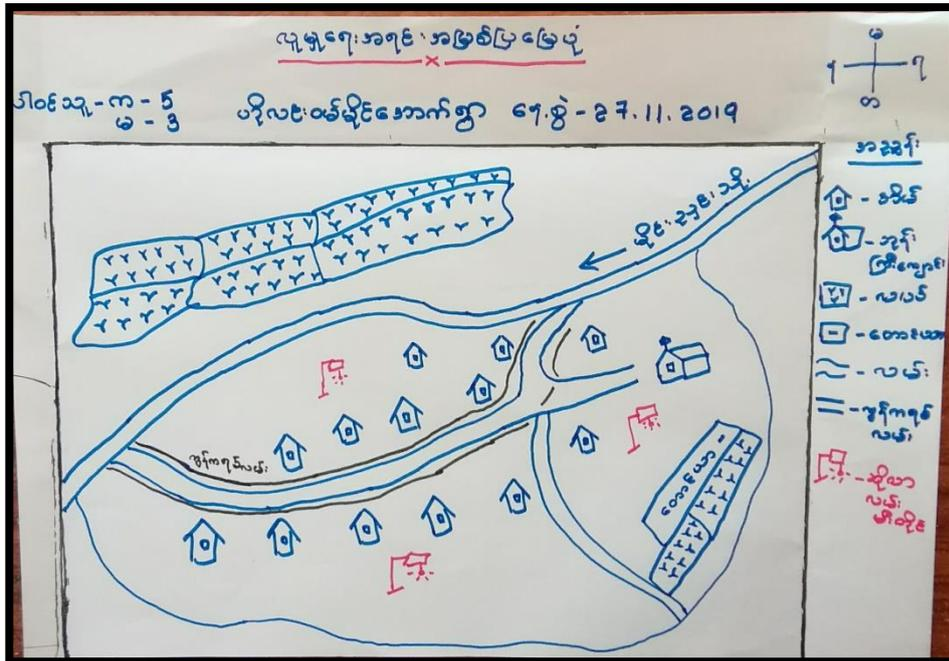 လူမှုရေးအရင်းအမြစ်ပြမြေပုံ
ပါဝင်သူ - က - 5
မ - 3
ဟိုလင်းဝမ်မိုင်အောက်ရွာ နေ့စွဲ - 27.11.2019
မ
တ
အညွှန်း
- အိမ်
- ဘုန်း
ကြီးကျောင်း
- လယ်
- တောင်ယာ
- လမ်း
- ကွန်ကရစ်
လမ်း
- ဆိုလာ
လမ်း
မီးတိုင်
ကွန်ကရစ်လမ်း